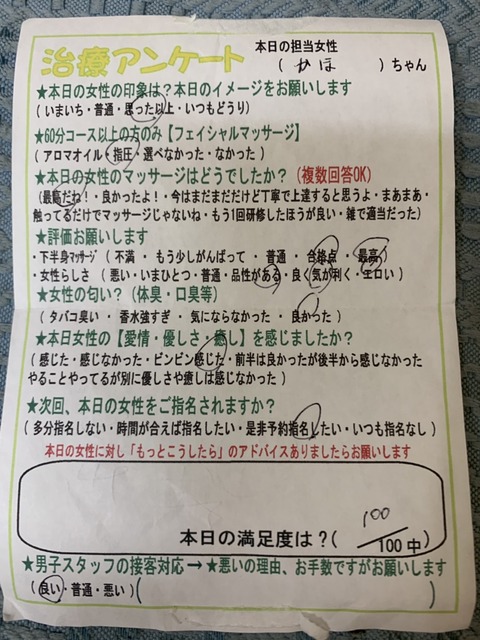 治療アンケート
本日の担当女性
( かほ )ちゃん
★本日の女性の印象は?本日のイメージをお願いします
( いまいち・普通・思った以上・いつもどうり )
★60分コース以上の方のみ【フェイシャルマッサージ】
( アロマオイル・指圧・選べなかった・なかった )
★本日の女性のマッサージはどうでしたか? (複数回答OK)
(最高だね!・良かったよ!・今はまだまだだけど丁寧で上達すると思うよ・まあまあ・
触ってるだけでマッサージじゃないね・もう1回研修したほうが良い・雑で適当だった)
★評価お願いします
・下半身マッサージ ( 不満 ・ もう少しがんばって ・ 普通 ・ 合格点 ・ 最高 )
・女性らしさ ( 悪い・いまひとつ・普通・品性がある・良く気が利く・エロい )
★女性の匂い? (体臭・口臭等)
( タバコ臭い ・ 香水強すぎ ・ 気にならなかった ・ 良かった )
★本日女性の【愛情・優しさ・癒し】を感じましたか?
( 感じた・感じなかった・ビンビン感じた・前半は良かったが後半から感じなかった
やることやってるが別に優しさや癒しは感じなかった )
★次回、本日の女性をご指名されますか?
( 多分指名しない・時間が合えば指名したい・是非予約指名したい・いつも指名なし )
本日の女性に対し「もっとこうしたら」のアドバイスありましたらお願いします
本日の満足度は?( 100/100中 )
★男子スタッフの接客対応 → ★悪いの理由、お手数ですがお願いします
( 良い・普通・悪い ) ( )